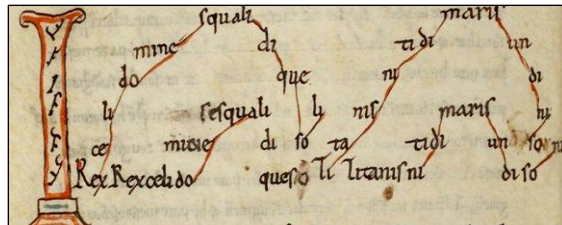 squali maris
mine di ti di un
do que ni di
li sesquali li nis maris ni
ce mine di so ta tidi un so ni
Rex Rex celi do queso li titanis ni di so